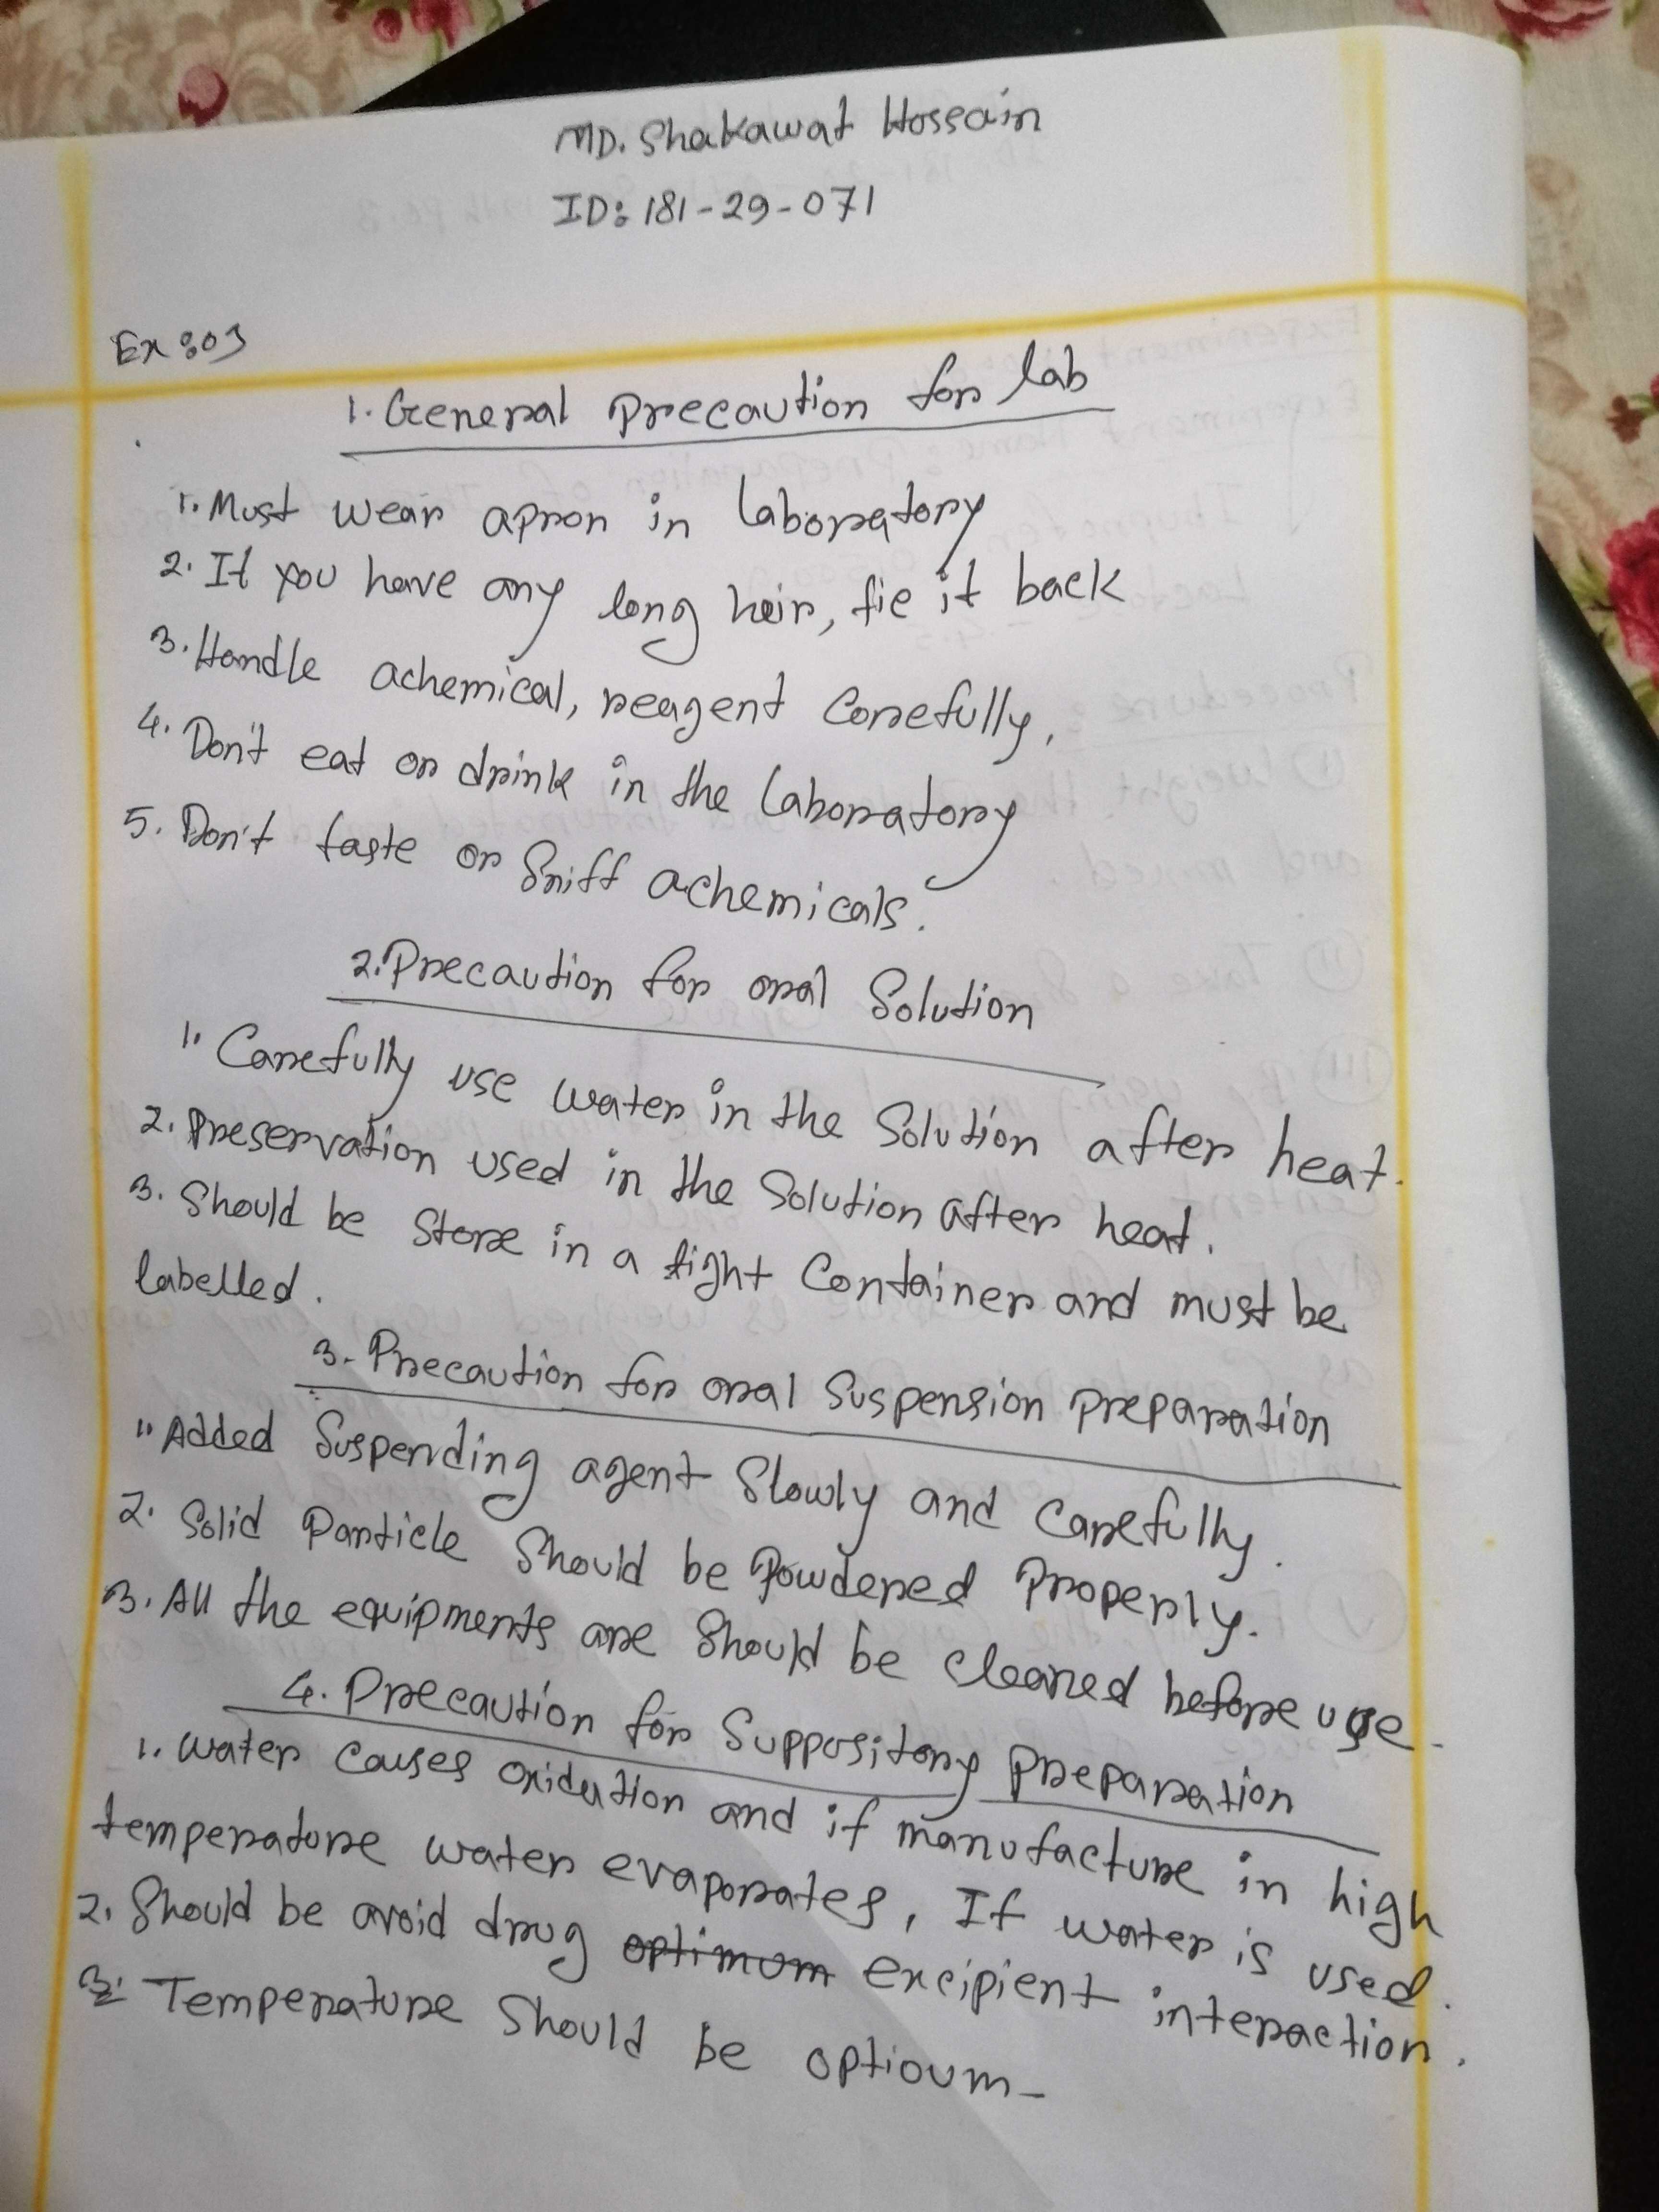 MD. Shakawat Hossain
ID: 181-29-071
Ex: 03
1. General precaution for lab
1. Must wear apron in laboratory
2. If you have any long hair, tie it back
3. Handle achemical, reagent Carefully.
4. Don't eat or drink in the laboratory
5. Don't taste or Sniff achemicals.
2. Precaution for oral Solution
1. Carefully use water in the Solution after heat.
2. Preservation used in the Solution after heat.
3. Should be Store in a tight Container and must be
labelled.
3. Precaution for oral Suspension preparation
1. Added Suspending agent Slowly and Carefully.
2. Solid Particle Should be Powdered Properly.
3. All the equipments are Should be cleaned before use.
4. Precaution for Suppository preparation
1. Water Causes oxidation and if manufacture in high
temperature water evaporates, If water is used.
2. Should be avoid drug optimum excipient interaction.
3. Temperature Should be optioum-